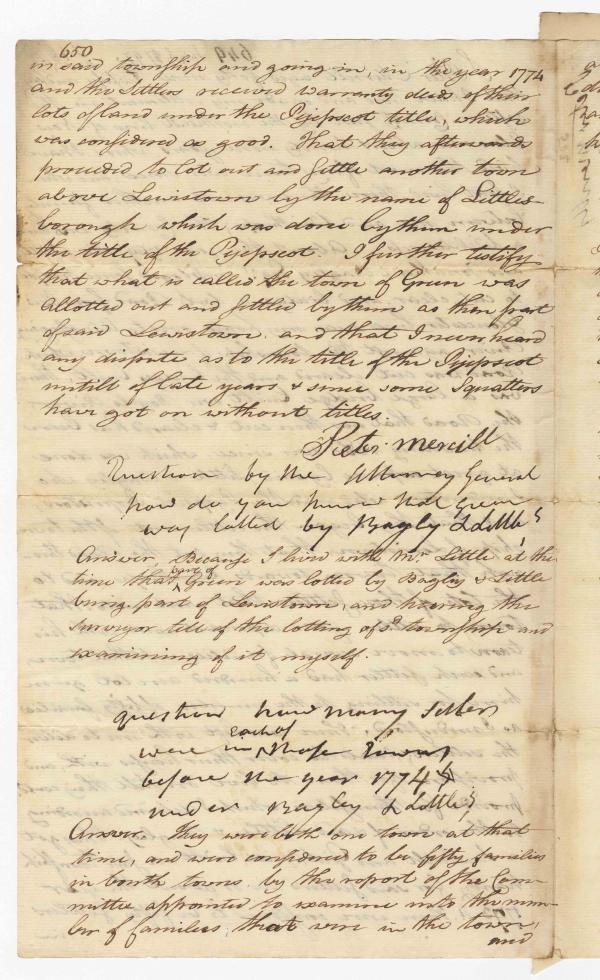 650
in said township and going in, in the year 1774
and the Settlers received warranty deeds of their
lots of land under the Pejepscot title, which
was considered as good. That they afterwards
proceeded to lot out and settle another town
above Lewistown by the name of Littles-
borough which was done by them under
the title of the Pejepscot. I further testify
that what is called the town of Green was
allotted out and settled by them as then part
of said Lewistown. and that I never heard
any dispute as to the title of the Pejepscot
untill of late years & since some Squatters
have got on without titles.
Peter Merrill
Question by the Attorney General
how do you know that Green
was lotted by Bagly & Little
Answer, Because I lived with Mr. Little at the
time that part of Green was lotted by Bagley & Little
being part of Lewistown, and hearing the
surveyor tell of the lotting of sd. township and
examining of it myself.
question how many settlers
were in each of those Towns
before the year 1774
under Bagley & Little
Answer. They were both one town at that
time, and were considered to be fifty families
in bouth towns by the roport of the Com-
mittee appointed to examine into the num-
ber of families that were in the town,
and